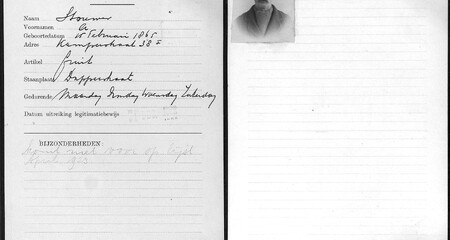 Naam Stouwer
Voornamen
Geboortedatum Februari 1865
Adres Kamperstraat 38 I
Artikel fruit
Staanplaats Dapperstraat
Gedurende Maandag Dinsdag Woensdag Zaterdag
Datum uitreiking legitimatiebewijs
BIJZONDERHEDEN:
niet voor op lijst
April 1923